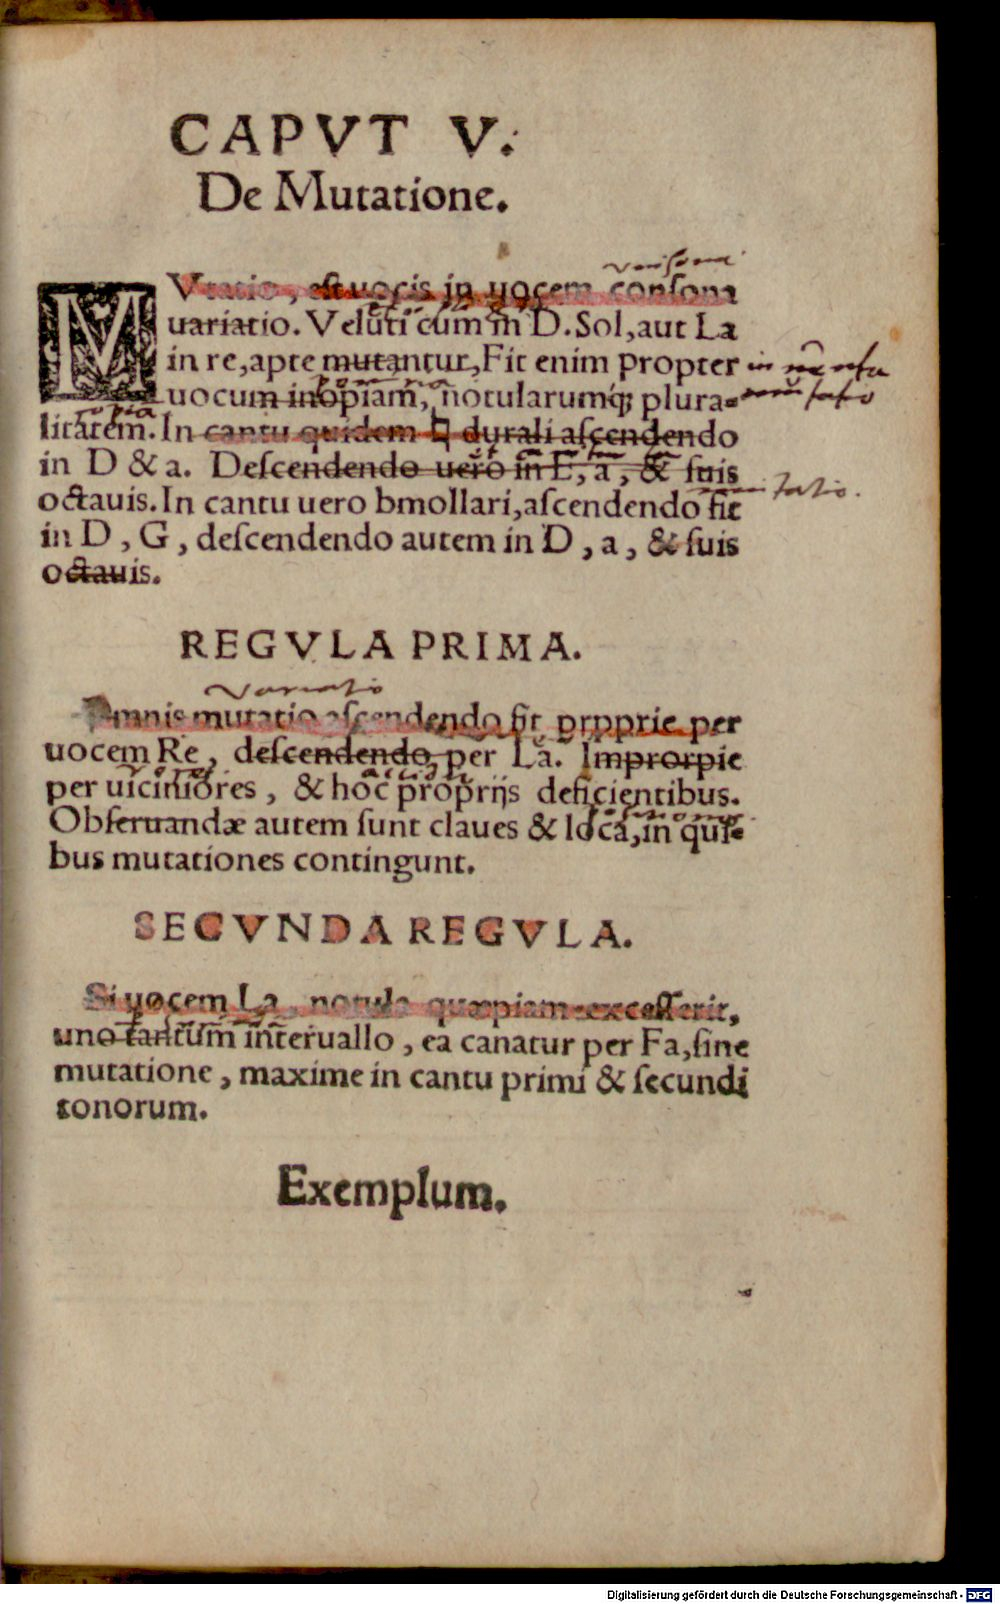 CAPVT V.
De Mutatione.
unisona
MVtatio, est uocis in uocem consona
uariatio. Veluti cum in D. Sol, aut La
in re, apte mutantur, Fit enim propter
uocum inopiam, notularumq́; plura-
litatem. In cantu quidem ♮ durali ascendendo
in D & a. Descendendo uero in E, a, & suis
octauis. In cantu uero bmollari, ascendendo fit
mutatio.
in D, G, descendendo autem in D, a, & suis
octauis.
REGVLA PRIMA.
Variatio
Omnis mutatio ascendendo fit prpprie per
uocem Re, descendendo, per La. Improrpie
voces.
per uiciniores, & hoc proprijs deficientibus.
Obseruandæ autem sunt claues & loca, in qui-
bus mutationes contingunt.
SECVNDA REGVLA.
Si uocem La, notula quæpiam excesserit,
uno tantum interuallo, ea canatur per Fa, sine
mutatione, maxime in cantu primi & secundi
tonorum.
Exemplum.
Digitalisierung gefördert durch die Deutsche Forschungsgemeinschaft - DFG